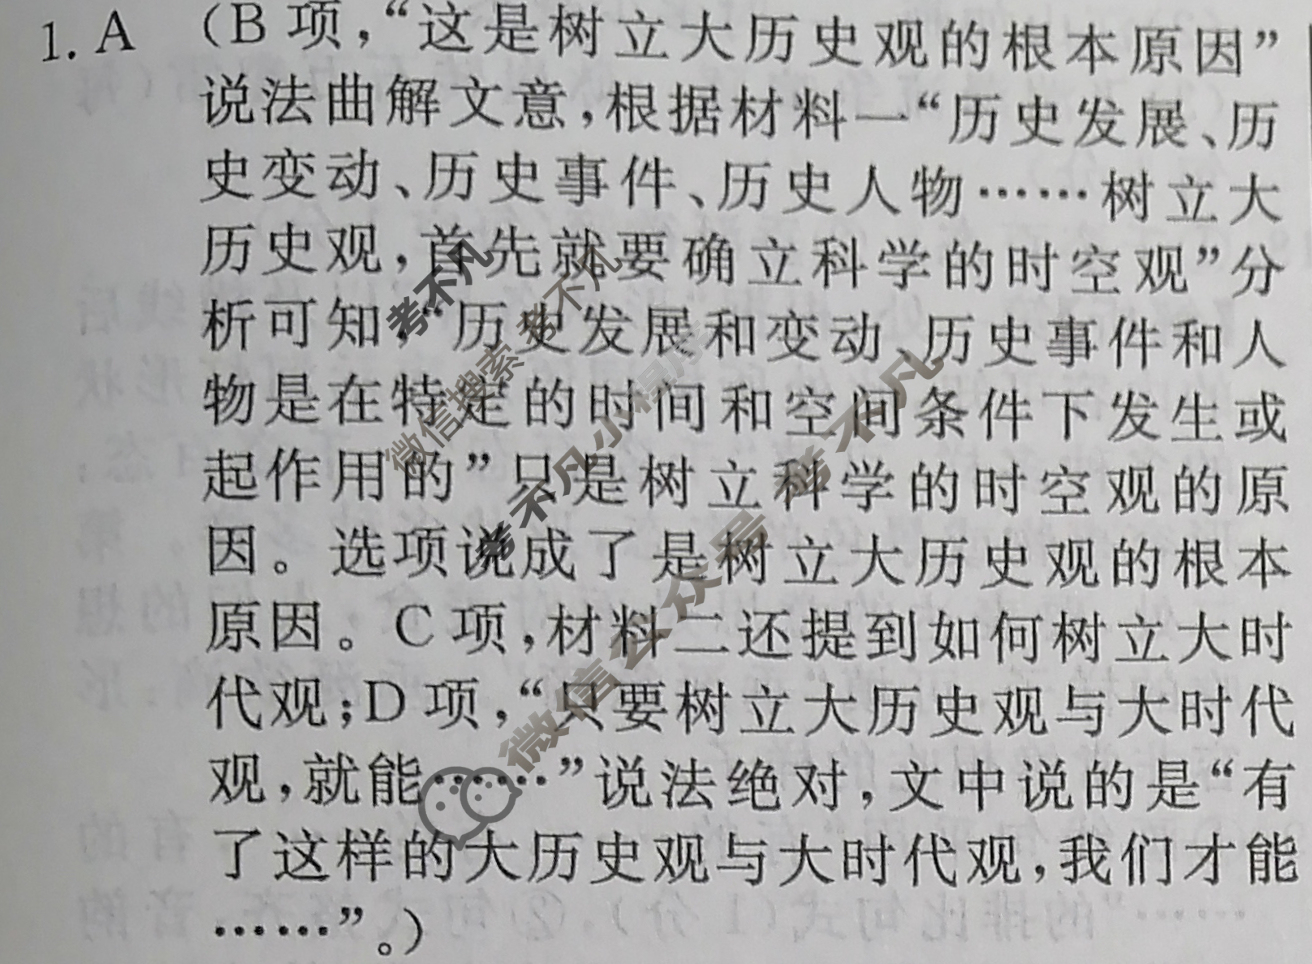 1. A （B 项,“这是树立大历史观的根本原因”
说法曲解文意,根据材料一“历史发展、历
史变动、历史事件、历史人物……树立大
历史观,首先就要确立科学的时空观”分
析可知,“历史发展和变动、历史事件和人
物是在特定的时间和空间条件下发生或
起作用的”只是树立科学的时空观的原
因。选项说成了是树立大历史观的根本
原因。C 项,材料二还提到如何树立大时
代观;D 项,“只要树立大历史观与大时代
观,就能……”说法绝对,文中说的是“有
了这样的大历史观与大时代观,我们才能
……”。）
考不凡
微信搜索 考不凡
考不凡小程序
微信公众号 考不凡